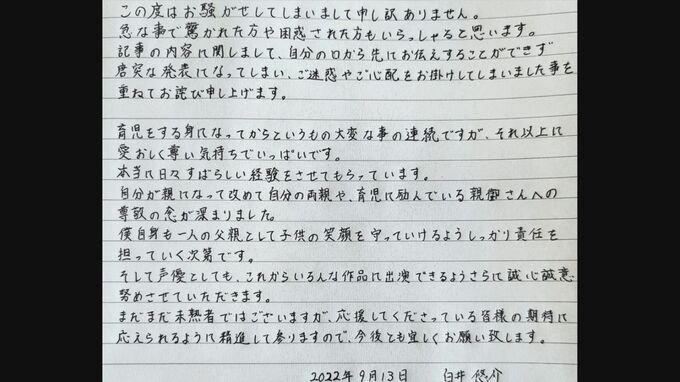 この度はお騒がせしてしまいまして申し訳ありません。
急な事で驚かれた方や困惑された方もいらっしゃると思います。
記事の内容に関しまして、自分の口から先にお伝えすることができず
唐突な発表になってしまい、ご迷惑やご心配をお掛けしてしまいました事を
重ねてお詫び申し上げます。
育児をする身になってからというもの大変な事の連続ですが、それ以上に
愛おしく尊い気持ちでいっぱいです。
本当に日々すばらしい経験をさせてもらっています。
自分が親になって改めて自分の両親や、育児に励んでいる親御さんへの
尊敬の念が深まりました。
僕自身も一人の父親として子供の笑顔を守っていけるようしっかり責任を
担っていく次第です。
そして声優としても、これからいろんな作品に出演できるようさらに誠心誠意
努めさせていただきます。
まだまだ未熟者ではございますが、応援してくださっている皆様の期待に
応えられるように精進して参りますので、今後とも宜しくお願い致します。
2022年9月13日 白井 悠介